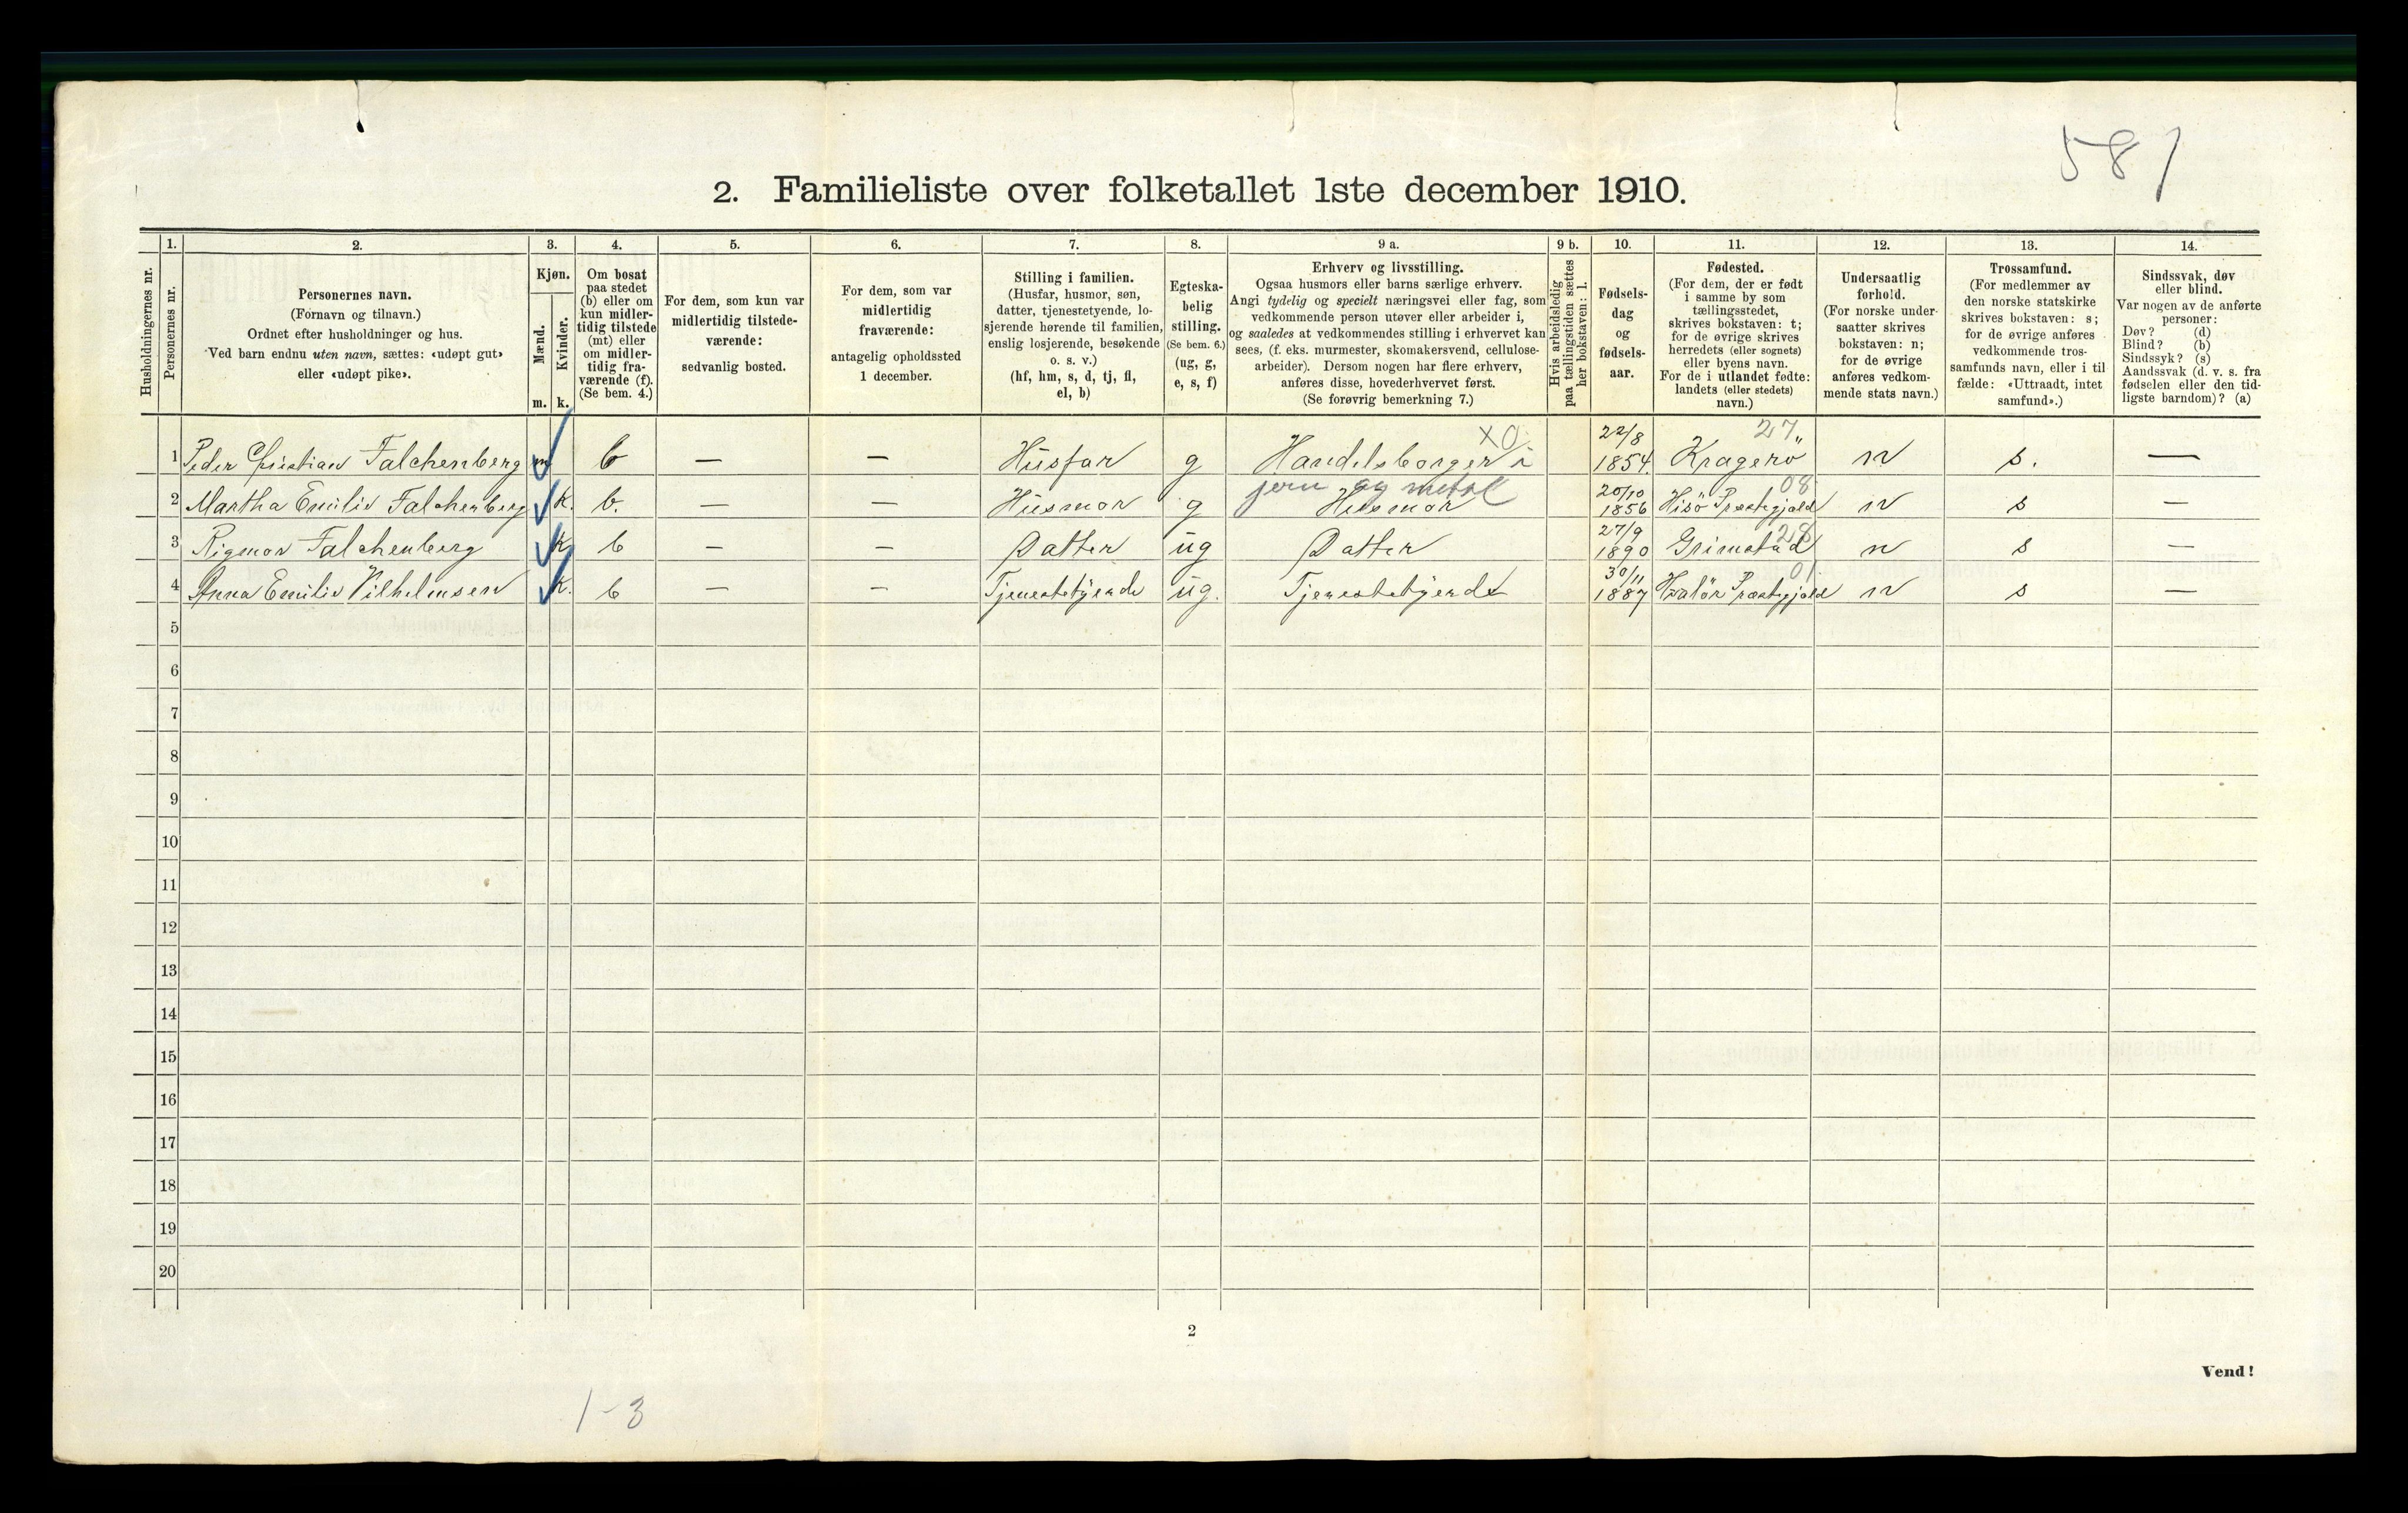 581
2. Familieliste over folketallet 1ste december 1910.
Husholdningernes nr.
1. Personernes nr.
2. Personernes navn.
(Fornavn og tilnavn.)
Ordnet efter husholdninger og hus.
Ved barn endnu uten navn, sættes: «udøpt gut»
eller «udøpt pike».
3. Kjøn.
Mænd. m.
Kvinder. k.
4. Om bosat
paa stedet
(b) eller om
kun midler-
tidig tilstede
(mt) eller
om midler-
tidig fra-
værende (f).
(Se bem. 4.)
5. For dem, som kun var
midlertidig tilstede-
værende:
sedvanlig bosted.
6. For dem, som var
midlertidig
fraværende:
antagelig opholdssted
1 december.
7. Stilling i familien.
(Husfar, husmor, søn,
datter, tjenestetyende, lo-
sjerende hørende til familien,
enslig losjerende, besøkende
o. s. v.)
(hf, hm, s, d, tj, fl,
el, b)
8. Egteska-
belig
stilling.
(Se bem. 6.)
(ug, g,
e, s, f)
9 a. Erhverv og livsstilling.
Ogsaa husmors eller barns særlige erhverv.
Angi tydelig og specielt næringsvei eller fag, som
vedkommende person utøver eller arbeider i,
og saaledes at vedkommendes stilling i erhvervet kan
sees, (f. eks. murmester, skomakersvend, cellulose-
arbeider). Dersom nogen har flere erhverv,
anføres disse, hovederhvervet først.
(Se forøvrig bemerkning 7.)
9 b. Hvis arbeidsledig
paa tællingstiden sættes
her bokstaven: l.
10. Fødsels-
dag
og
fødsels-
aar.
11. Fødested.
(For dem, der er født
i samme by som
tællingsstedet,
skrives bokstaven: t;
for de øvrige skrives
herredets (eller sognets)
eller byens navn.
For de i utlandet fødte:
landets (eller stedets)
navn.)
12. Undersaatlig
forhold.
(For norske under-
saatter skrives
bokstaven: n;
for de øvrige
anføres vedkom-
mende stats navn.)
13. Trossamfund.
(For medlemmer av
den norske statskirke
skrives bokstaven: s;
for de øvrige anføres
vedkommende tros-
samfunds navn, eller i til
fælde: «Uttraadt, intet
samfund».)
14. Sindssvak, døv
eller blind.
Var nogen av de anførte
personer:
Døv? (d)
Blind? (b)
Sindssyk? (s)
Aandssvak (d. v. s. fra
fødselen eller den tid-
ligste barndom)? (a)
1 Peder Christian Falchenberg m b — — Husfar g Handelsborger i jern og metal X0 22/8 1854. Kragerø 27 n s. —
2 Martha Emilie Falchenberg k. b. — — Husmor g Husmor 20/10 1856 Hisö Præstegjeld 08 n s —
3 Rigmor Falchenberg k b — — Datter ug Datter 27/9 1890 Grimstad 28 n s —
4 Anna Emilie Vilhelmsen k. b — — Tjenestetyende ug. Tjenestetyende 30/11 1887 Hvalör Præstegjeld 01 n s —
5
6
7
8
9
10
11
12
13
14
15
16
17
18
19
20
2
Vend!
1-3